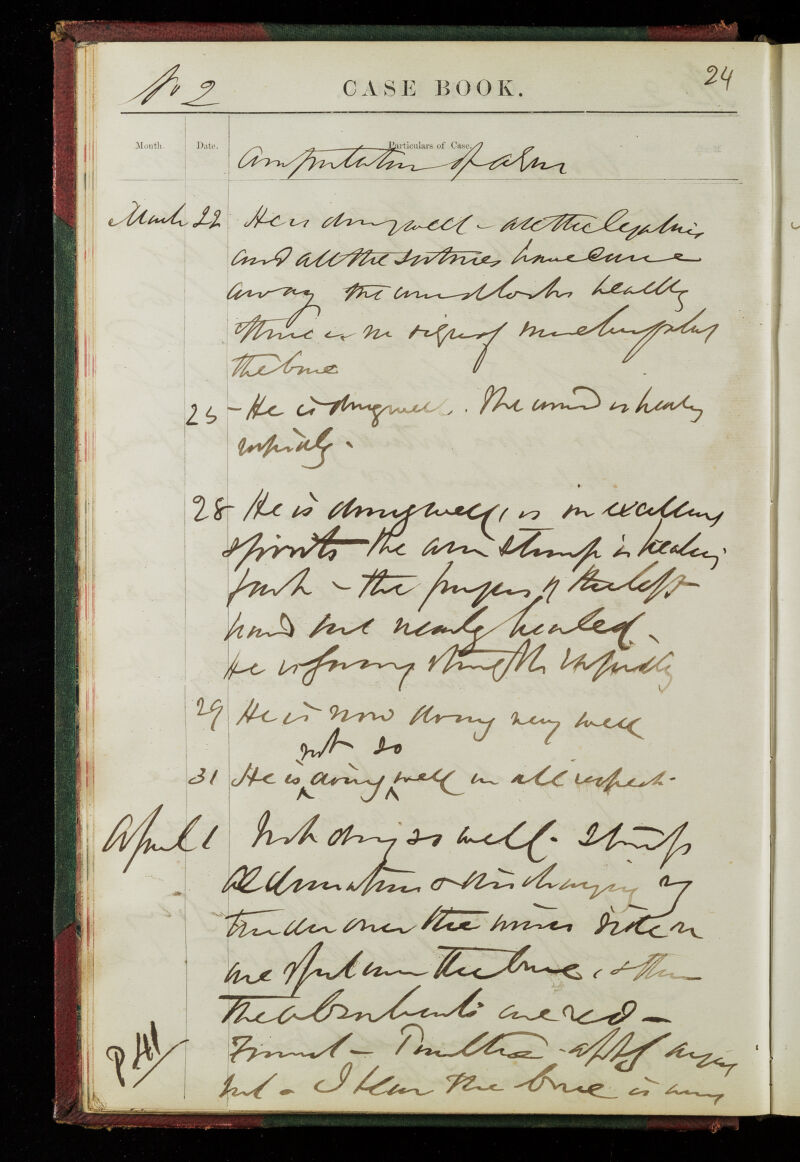 No 2
CASE BOOK.
24
Month.
Date.
Particulars of Case.
Amputation of arm
March 22 He is doing well - all the ligatures
and all the sutures have come
away the wound looks healthy
there is no sign of
the bone
25 - He is doing well. The wound is healing
rapidly.
28 He is doing well, is in excellent
spirits the arm stump is healing
fast - the fingers of the left
hand are nearly healed
He is gaining strength rapidly
29 He is now doing very well
not so
31 He is doing well in all respects.
April 1 Not doing so well. Stump
oedematous & discharging
tender over the inner side in
one spot over the bone, & then
the absorbents are red -
Foment - Poultice - apply
- I fear the bone is
P 41